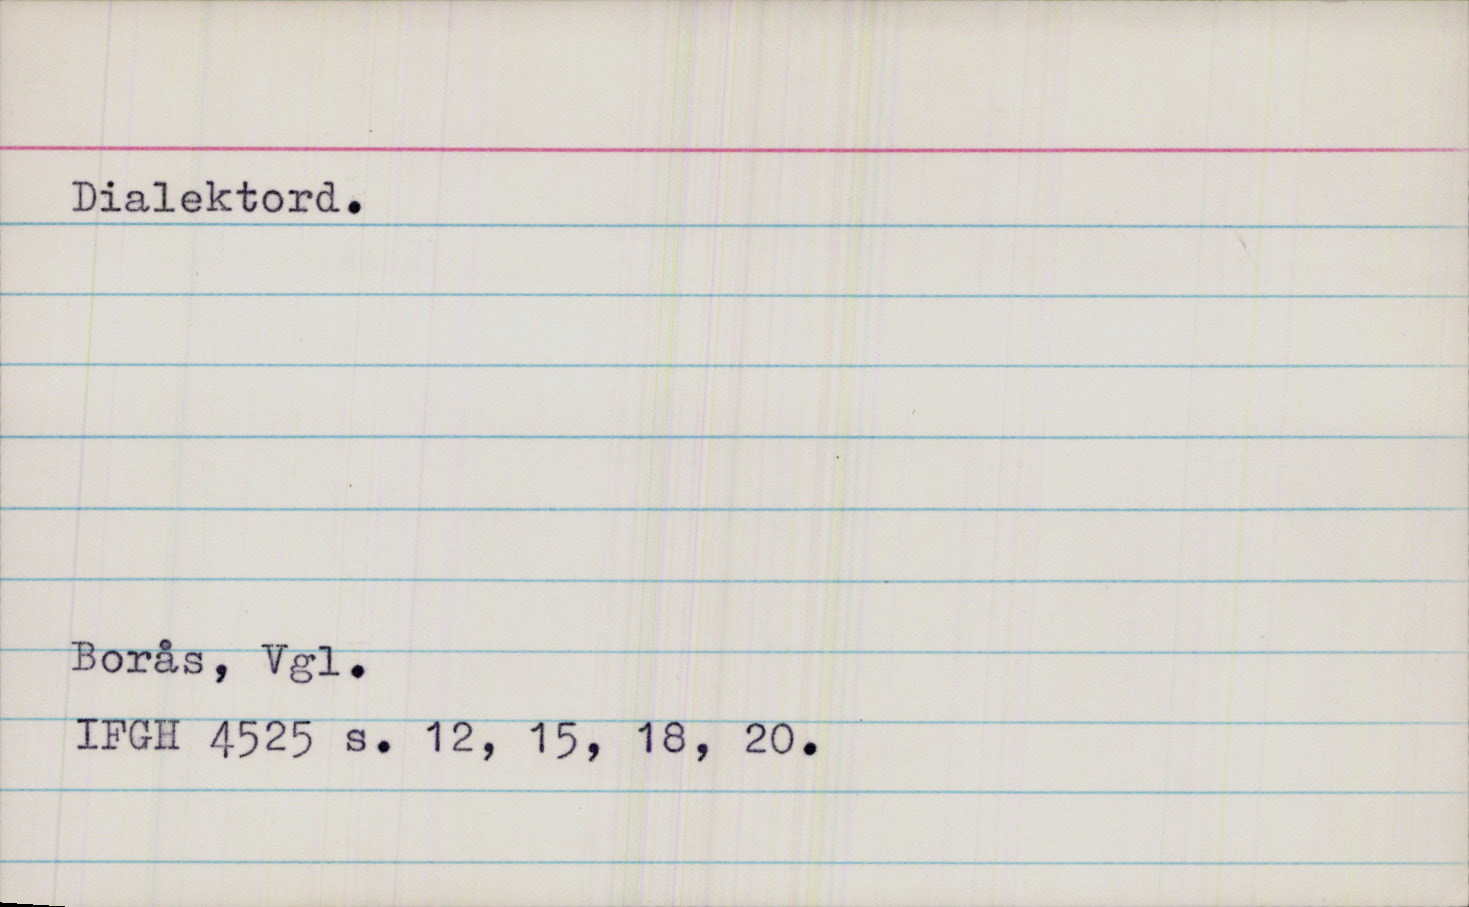 Dialektord.
Borås, Vgl.
IFGH 4525 s. 12, 15, 18, 20.